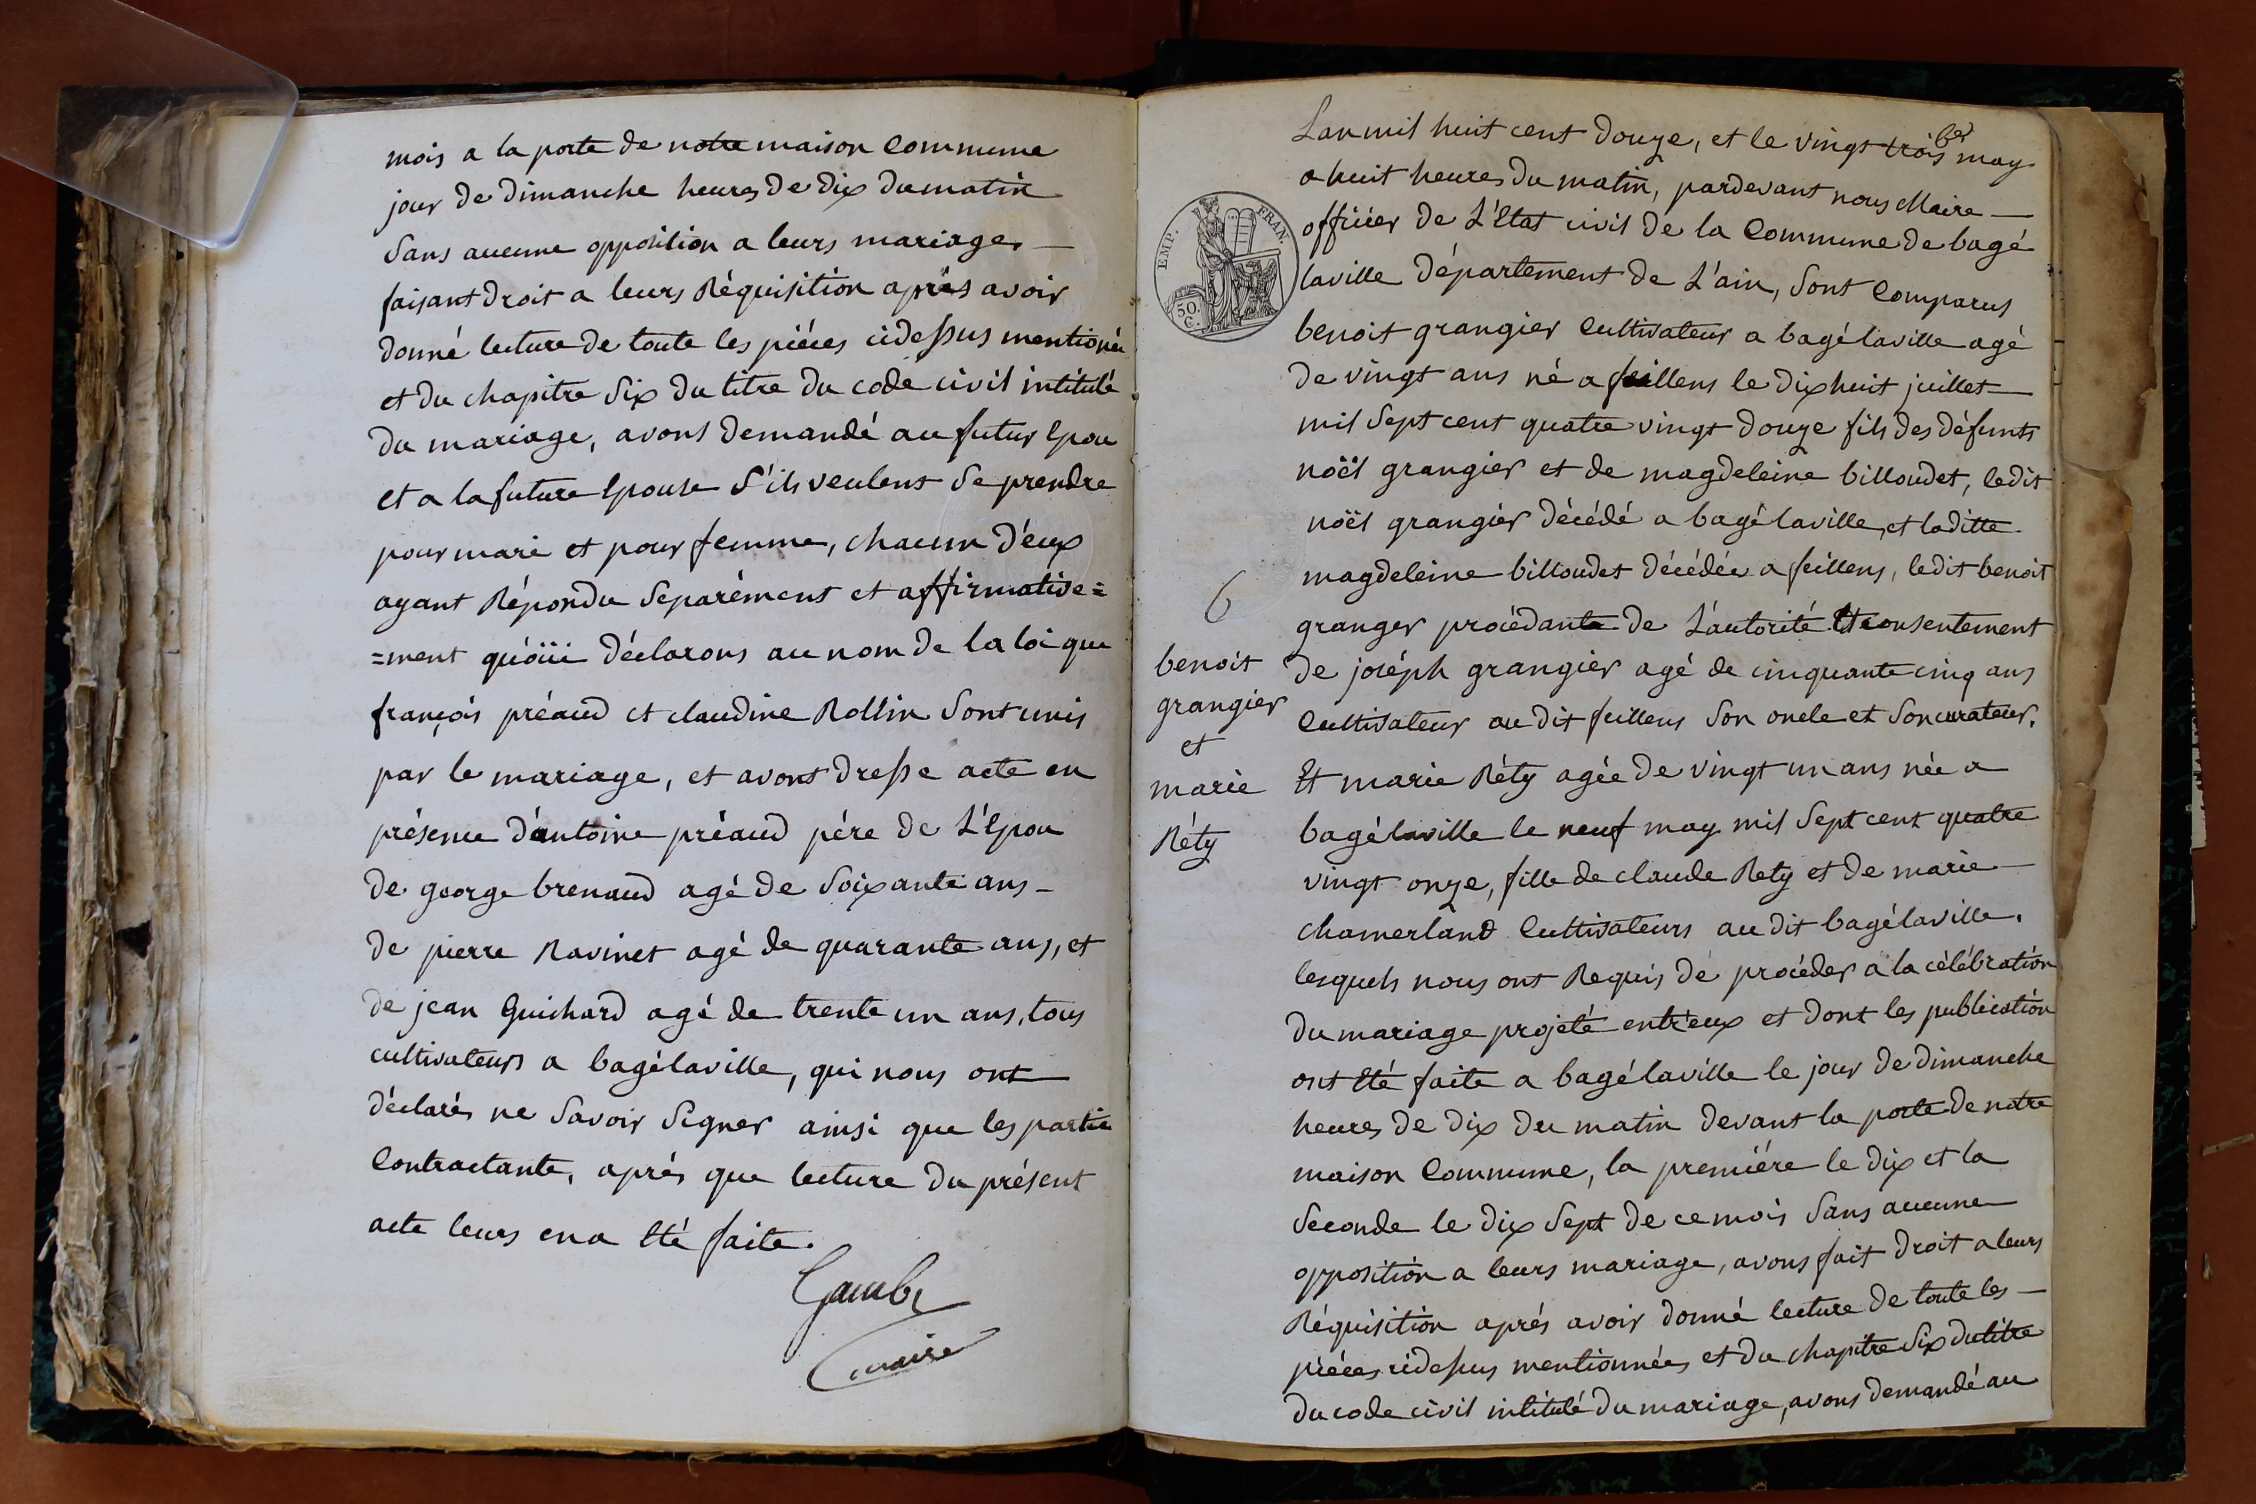 mois a la porte de notre maison Commune
jour de dimanche heures de dix du matin
Sans aucune opposition a leurs mariage, —
faisant droit a leurs Réquisition aprés avoir
donné lecture de toute les piéces cidessus mentionée
et du chapitre Six du titre du code civil intitulé
du mariage, avons demandé au futur Epou
et a la future Epouse s'ils veulent se prendre
pour mari et pour femme, chacun d'éux
ayant Répondu Separément et affirmative=
=ment qu'öui déclarons au nom de la loi que
françois préaud et claudine Rollin Sont unis
par le mariage, et avons dresse acte en
présence d'antoine préaud pére de L'Epou
de george brenaud agé de Soixante ans —
de pierre Ravinet agé de quarante ans, et
de jean Guichard agé de trente un ans, tous
cultivateurs a bagélaville, qui nous ont
déclarés ne Savoir Signer ainsi que les partie
Contractante, aprés que lecture du présent
acte leurs en a Eté faite.
maire
EMP. FRAN.
50.
C.
6
benoit
grangier
et
marie
Réty
Lan mil huit cent douze, et le vingt trois may
a huit heures du matin, pardevant nous Maire —
officier de L'Etat civil de la Commune de bagé
laville département de L'ain, Sont Comparus
benoit grangier Cultivateur a bagélaville agé
de vingt ans né a feillens le dix huit juillet —
mil Sept cent quatre vingt douze fils des défunts
nöël grangier et de magdeleine billoudet, ledit
nöël grangier décédé a bagélaville, et laditte
magdeleine billoudet décédée a feillens, ledit benoit
granger procédante de L'autorité Et consentement
de joséph grangier agé de cinquante cinq ans
Cultivateur au dit feillens Son oncle et Son curateur.
Et marie Réty agée de vingt un ans née a
bagélaville le neuf may mil Sept cent quatre
vingt onze, fille de claude Rety et de marie —
chamerland Cultivateurs au dit bagélaville.
lesquels nous ont Requis de procéder a la célébration
du mariage projeté entr'eux et dont les publication
ont Eté faite a bagélaville le jour de dimanche
heures de dix du matin devant la porte de notre
maison Commune, la premiére le dix et la
Seconde le dix Sept de ce mois Sans aucune
opposition a leurs mariage, avons fait droit a leurs
Réquisition aprés avoir donné lecture de toute les —
piéces cidessus mentionnées et du chapitre Six du titre
du code civil intitulé du mariage, avons demandé au